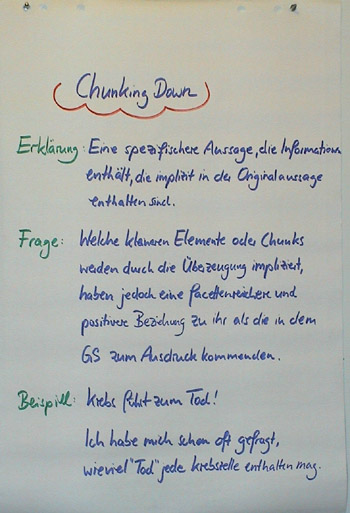 Chunking Down
Erklärung: Eine spezifischere Aussage, die Informationen
enthält, die implizit in der Originalaussage
enthalten sind.
Frage: Welche kleineren Elemente oder Chunks
werden durch die Überzeugung impliziert,
haben jedoch eine facettenreichere und
positivere Beziehung zu ihr als die in dem
GS zum Ausdruck kommenden.
Beispiel: Krebs führt zum Tod!
Ich habe mich schon oft gefragt,
wieviel "Tod" jede Krebszelle enthalten mag.